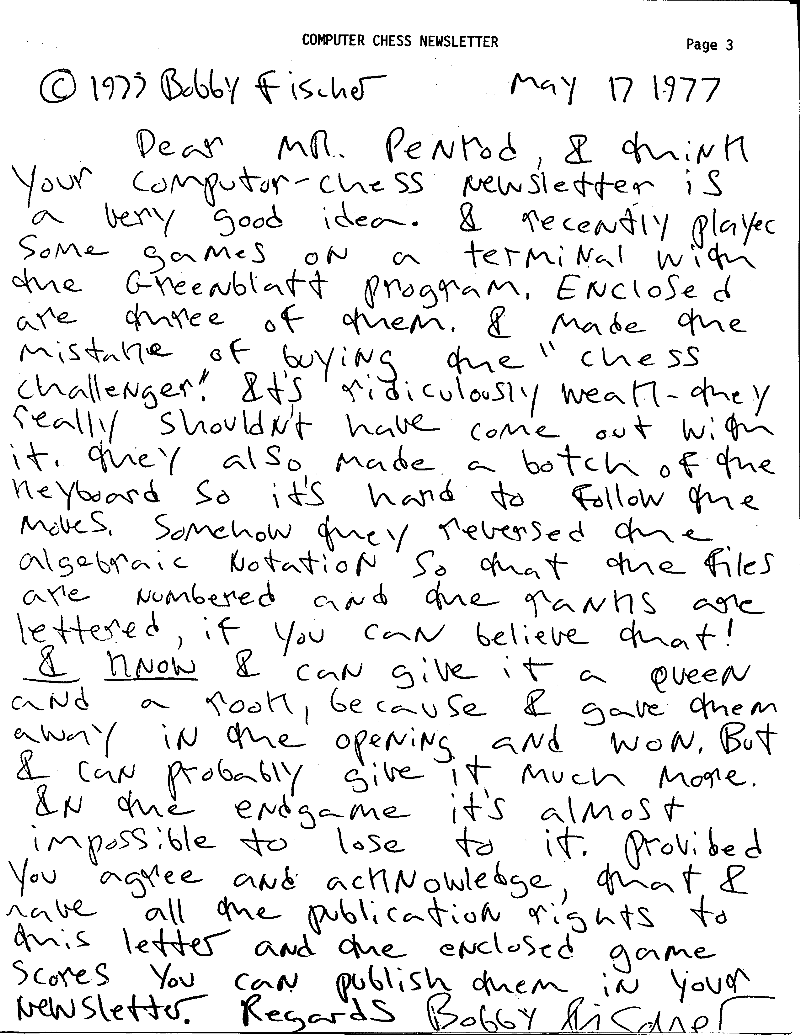 COMPUTER CHESS NEWSLETTER
Page 3
© 1977 Bobby Fischer May 17 1977
Dear MR. Penrod, I think
your computor-chess newsletter is
a very good idea. I recently played
some games on a terminal with
the Greenblatt program. Enclosed
are three of them. I made the
mistake of buying the "chess
challenger". It's ridiculously weak-they
really shouldn't have come out with
it. they also made a botch of the
keyboard so it's hard to follow the
moves. Somehow they reversed the
algebraic notation so that the files
are numbered and the ranks are
lettered, if you can believe that!
I know I can give it a queen
and a rook, because I gave them
away in the opening and won. But
I can probably give it much more.
In the endgame it's almost
impossible to lose to it. Provided
you agree and acknowledge, that I
have all the publication rights to
this letter and the enclosed game
scores you can publish them in your
newsletter. Regards Bobby Fischer